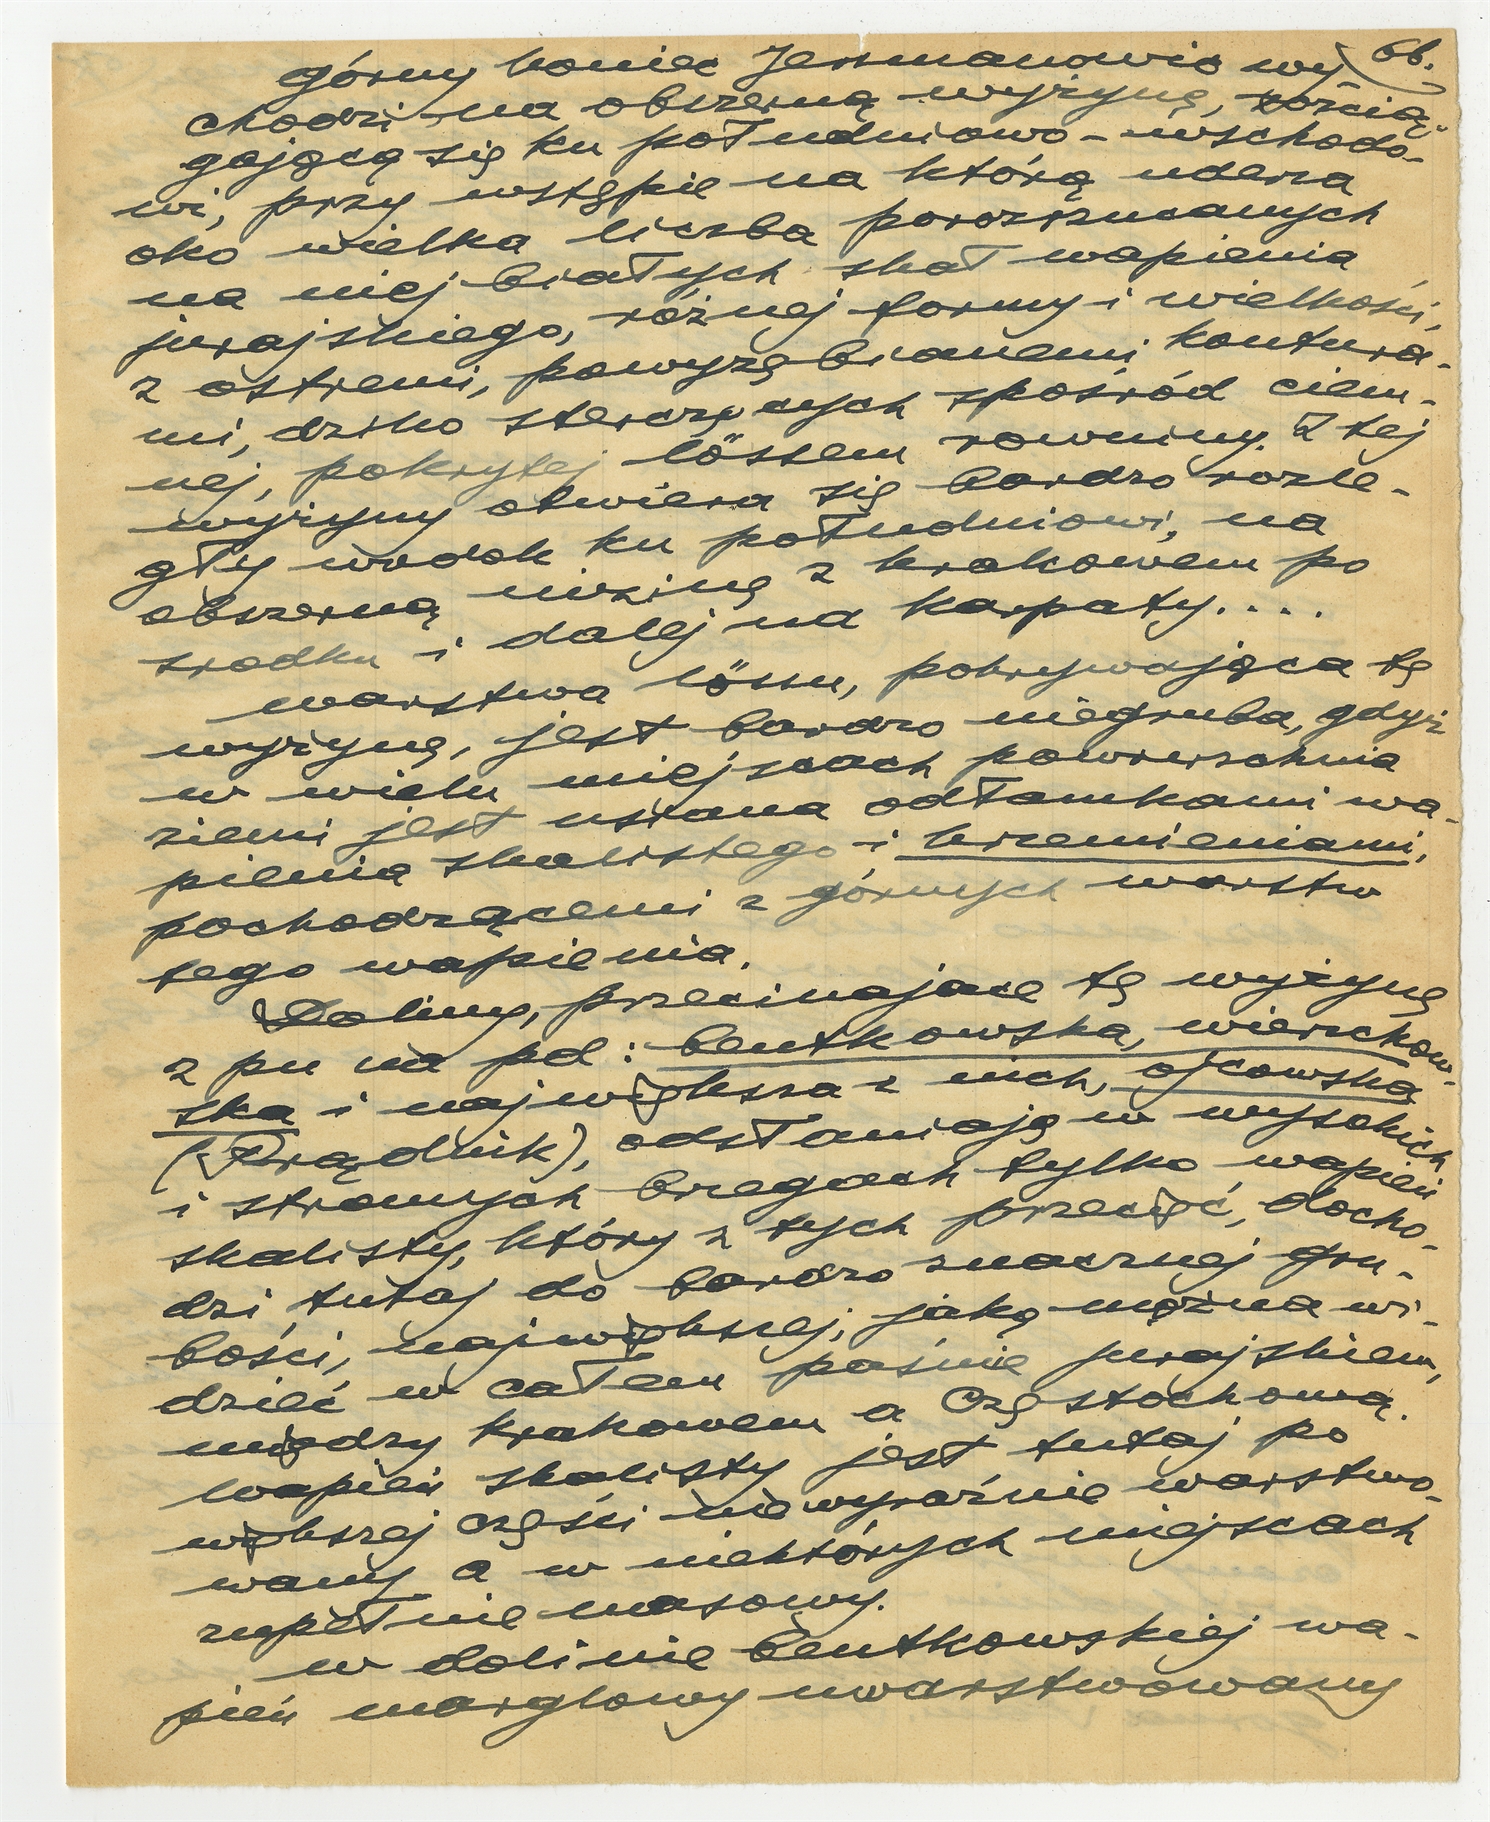 6b.
górny koniec Jerzmanowic wy-
chodzi na obszerną wyżynę, rością-
gającą się ku południowo-wschodo-
wi, przy wstępie na którą uderza
oko wielka liczba porozrzucanych
na niej białych skał wapienia
jurajskiego, różnej formy i wielkości,
z ostremi, powyzębianemi kontura-
mi, dziko sterczących zpośród ciem-
nej, pokrytej lössem rowniny. Z tej
wyżyny otwiera się bardzo rozle-
gły widok ku południowi, na
obszerną nizinę z krakowem po
srodku i dalej na karpaty....
warstwa lössu, pokrywająca tę
wyżynę, jest bardzo niegruba, gdyż
w wielu miejscach powierzchnia
ziemi jest usiana odłamkami wa-
pienia skalistego i krzemieniami,
pochodzącemi z górnych warstw
tego wapienia.
Doliny, przecinające tę wyżynę
z pn na pd: bentkowska, wierzchow-
ska i największa z nich, ojcowska
(Prądnik), odsłaniają w wysokich
i stromych brzegach tylko wapień
skalisty, który z tych przecięć, docho-
dzi tutaj do bardzo znacznej gru-
bości, największej, jaką można wi-
dzieć w całem paśmie jurajskiem,
między krakowem a Częstochową.
wapień skalisty jest tutaj po
większej części niewyraźnie warstwo-
wany a w niektórych miejscach
zupełnie masowy.
w dolinie bentkowskiej wa-
pień marglowy uwarstwowany